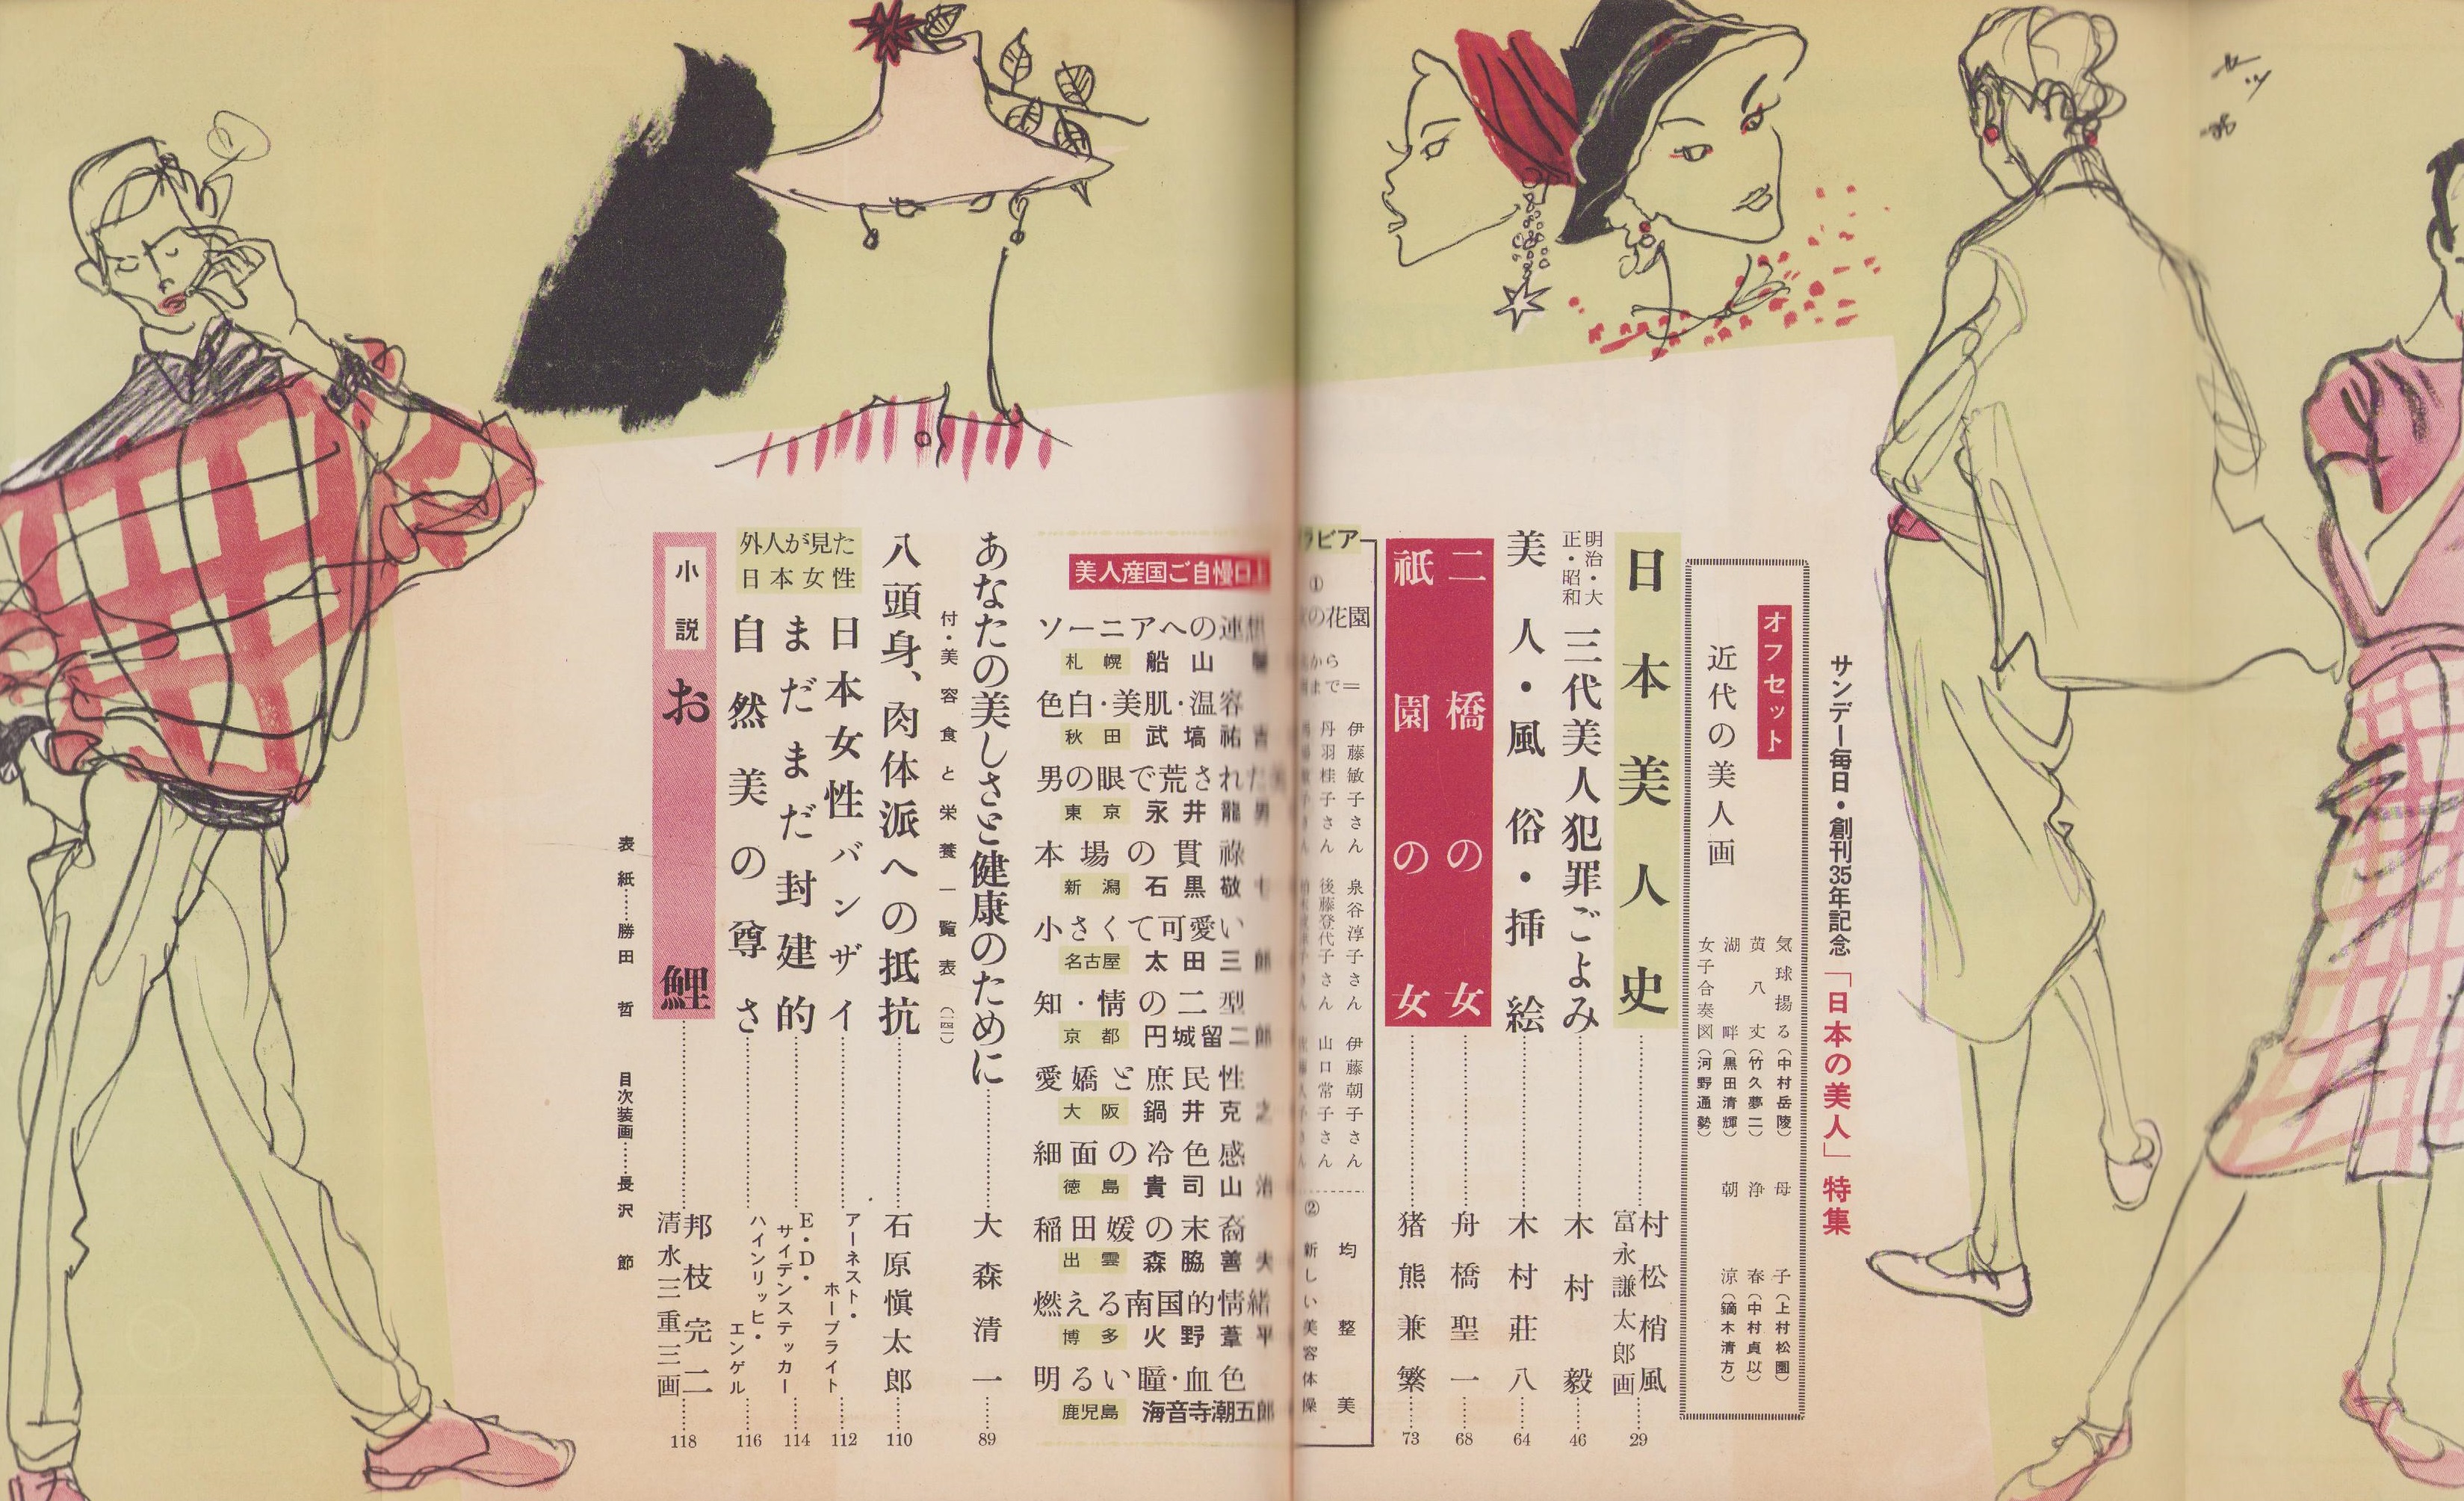 サンデー毎日・創刊35年記念「日本の美人」特集
オフセット
近代の美人画
気球揚る(中村岳陵)
黄八丈(竹久夢二)
湖畔(黒田清輝)
女子合奏図(河野通勢)
母子(上村松園)
浄春(中村貞以)
朝涼(鏑木清方)
日本美人史
村松梢風
富永謙太郎画
29
明治・大正・昭和
三代美人犯罪ごよみ
木村毅
46
美人・風俗・挿絵
木村荘八
64
二橋の女
舟橋聖一
68
祇園の女
猪熊兼繁
73
ラビア
①
の花園
から
まで=
伊藤敏子さん
泉谷淳子さん
伊藤朝子さん
丹羽桂子さん
後藤登代子さん
山口常子さん
②
均整美
新しい美容体操
美人産国ご自慢
ソーニアへの連想
札幌 船山馨
色白・美肌・温容
秋田 武塙祐吉
男の眼で荒され
東京 永井龍男
本場の貫祿
新潟 石黒敬七
小さくて可愛い
名古屋 太田三郎
知・情の二型
京都 円城留二郎
愛嬌と庶民性
大阪 鍋井克之
細面の冷色感
徳島 貴司山治
稲田媛の末裔
出雲 森脇善夫
燃える南国的情緒
博多 火野葦平
明るい瞳・血色
鹿児島 海音寺潮五郎
あなたの美しさと健康のために
大森清一
89
付・美容食と栄養一覧表
八頭身、肉体派への抵抗
石原慎太郎
110
外人が見た日本女性
日本女性バンザイ
アーネスト・ホーブライト
112
まだまだ封建的
E・D・サイデンステッカー
114
自然美の尊さ
ハインリッヒ・エンゲル
116
小説
お鯉
邦枝完二
清水三重三画
118
表紙……勝田哲
目次装画……長沢節